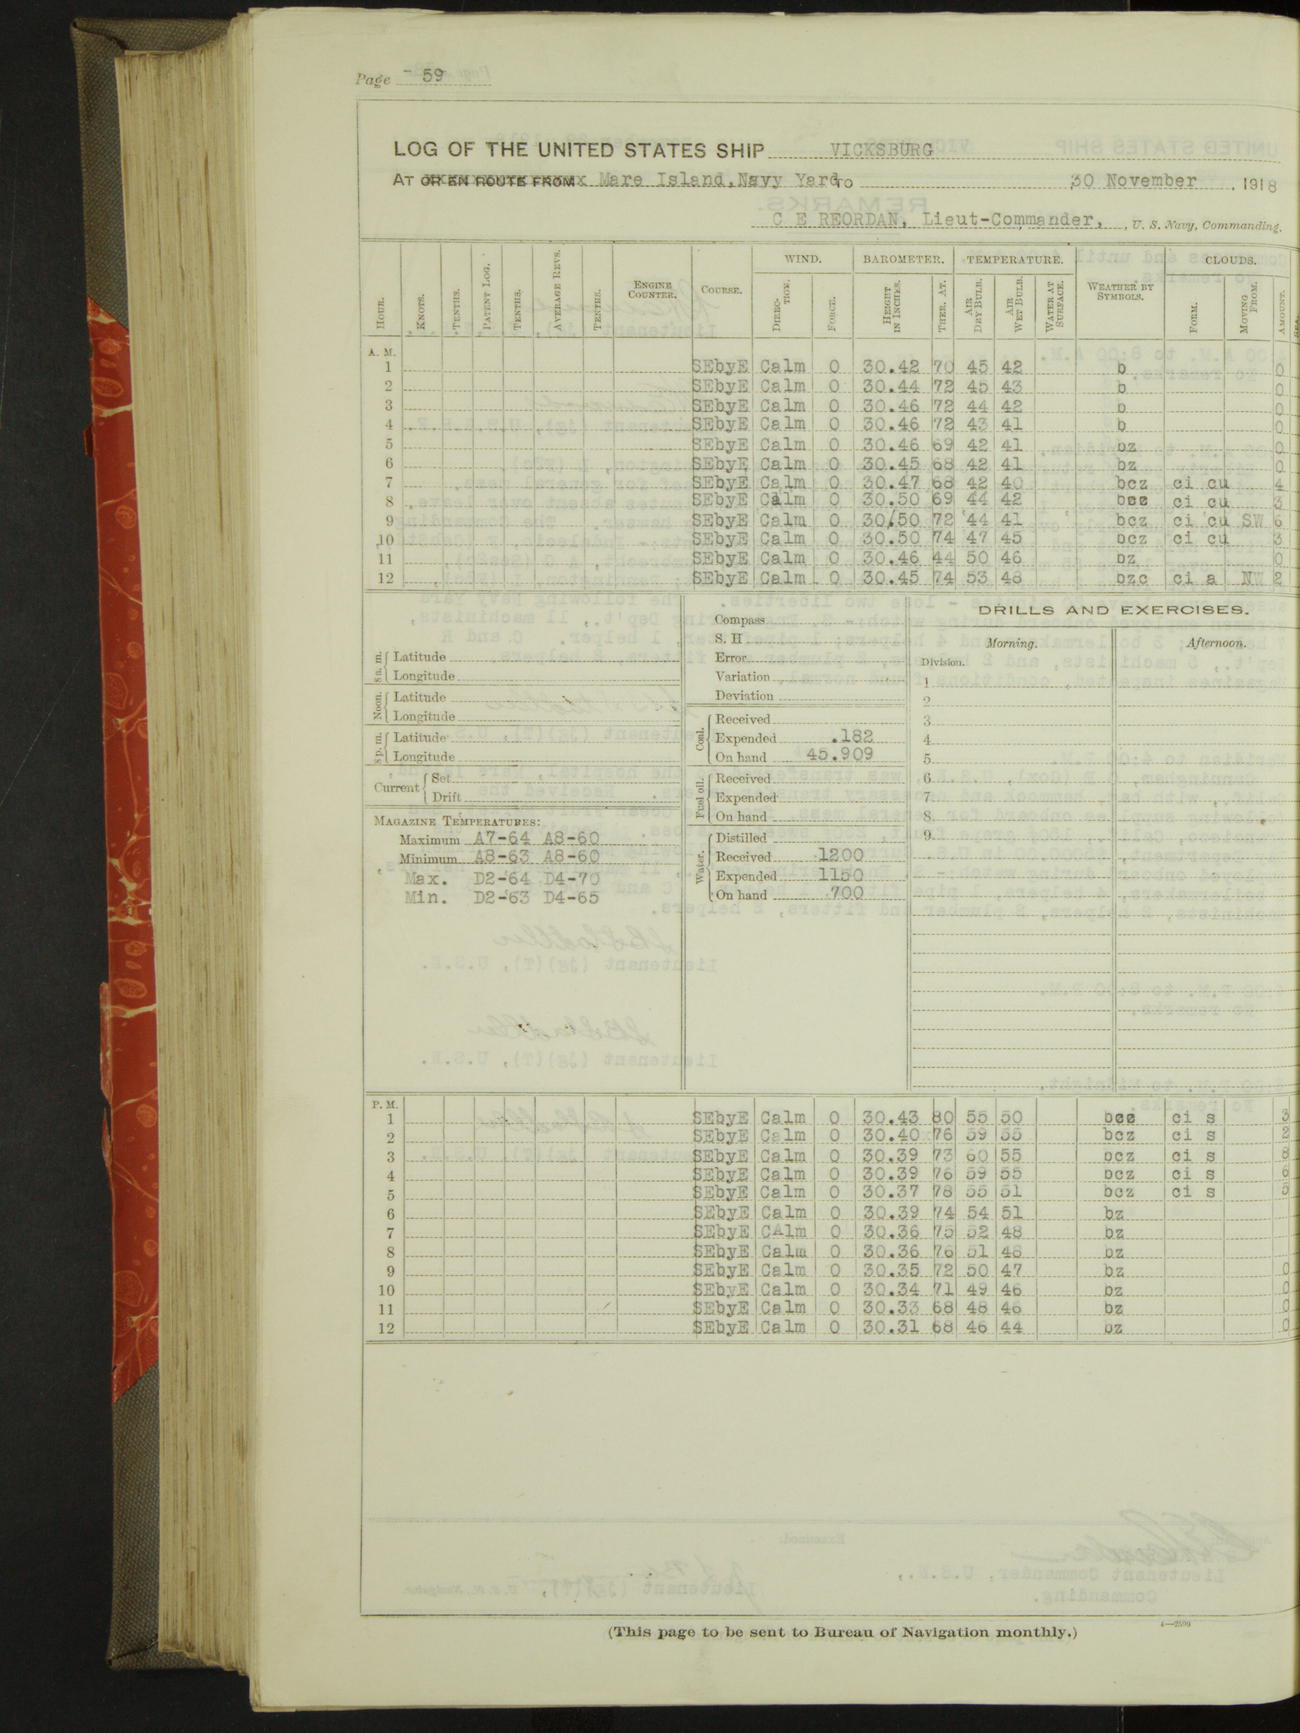 Page 59
LOG OF THE UNITED STATES SHIP VICKSBURG
AT OR EN ROUTE FROM Mare Island, Navy Yard TO 30 November, 1918
C E REORDAN, Lieut-Commander, , U. S. Navy, Commanding.
WIND. BAROMETER. TEMPERATURE. CLOUDS.
HOUR. KNOTS. TENTHS. PATENT LOG. TENTHS. AVERAGE REVS. TENTHS. ENGINE COUNTER. COURSE. DIREC-TION. FORCE. HEIGHT IN INCHES. THER. AT. AIR DRY BULB. AIR WET BULB. WATER AT SURFACE. WEATHER BY SYMBOLS. FORM. MOVING FROM. AMOUNT.
A. M.
1 SEbyE Calm 0 30.42 70 45 42 b 0
2 SEbyE Calm 0 30.44 72 45 43 b 0
3 SEbyE Calm 0 30.46 72 44 42 b 0
4 SEbyE Calm 0 30.46 72 43 41 b 0
5 SEbyE Calm 0 30.46 69 42 41 bz 0
6 SEbyE Calm 0 30.45 68 42 41 bz 0
7 SEbyE Calm 0 30.47 68 42 40 bcz ci cu 4
8 SEbyE Calm 0 30.50 69 44 42 bcz ci cu 3
9 SEbyE Calm 0 30.50 72 44 41 bcz ci cu SW 6
10 SEbyE Calm 0 30.50 74 47 45 bcz ci cu 3
11 SEbyE Calm 0 30.46 44 50 46 bz 0
12 SEbyE Calm 0 30.45 74 53 48 bzc ci a N 2
DRILLS AND EXERCISES.
Morning. Afternoon.
Division.
1
2
3
4
5
6
7
8
9
8 a. m. Latitude
Longitude
Noon. Latitude
Longitude
8 p. m. Latitude
Longitude
Current Set
Drift
MAGAZINE TEMPERATURES:
Maximum A7-64 A8-60
Minimum A8-63 A8-60
Max. D2-64 D4-70
Min. D2-63 D4-65
Compass
S. H
Error
Variation
Deviation
Coal. Received
Expended .182
On hand 45.909
Fuel oil. Received
Expended
On hand
Water. Distilled
Received 1200
Expended 1150
On hand 700
P. M.
1 SEbyE Calm 0 30.43 80 55 50 bcz ci s 3
2 SEbyE Calm 0 30.40 76 59 55 bcz ci s 2
3 SEbyE Calm 0 30.39 73 60 55 bcz ci s 8
4 SEbyE Calm 0 30.39 76 59 55 bcz ci s 6
5 SEbyE Calm 0 30.37 78 55 51 bcz ci s 5
6 SEbyE Calm 0 30.39 74 54 51 bz
7 SEbyE CAlm 0 30.36 75 52 48 bz
8 SEbyE Calm 0 30.36 76 51 48 bz
9 SEbyE Calm 0 30.35 72 50 47 bz 0
10 SEbyE Calm 0 30.34 71 49 46 bz 0
11 SEbyE Calm 0 30.33 68 48 46 bz 0
12 SEbyE Calm 0 30.31 68 46 44 bz 0
(This page to be sent to Bureau of Navigation monthly.)